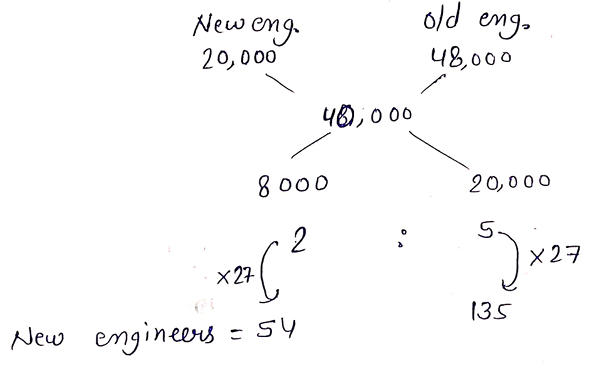 New eng. old eng.
20,000 48,000
40,000
8000 20,000
2 : 5
×27 ×27
135
New engineers = 54